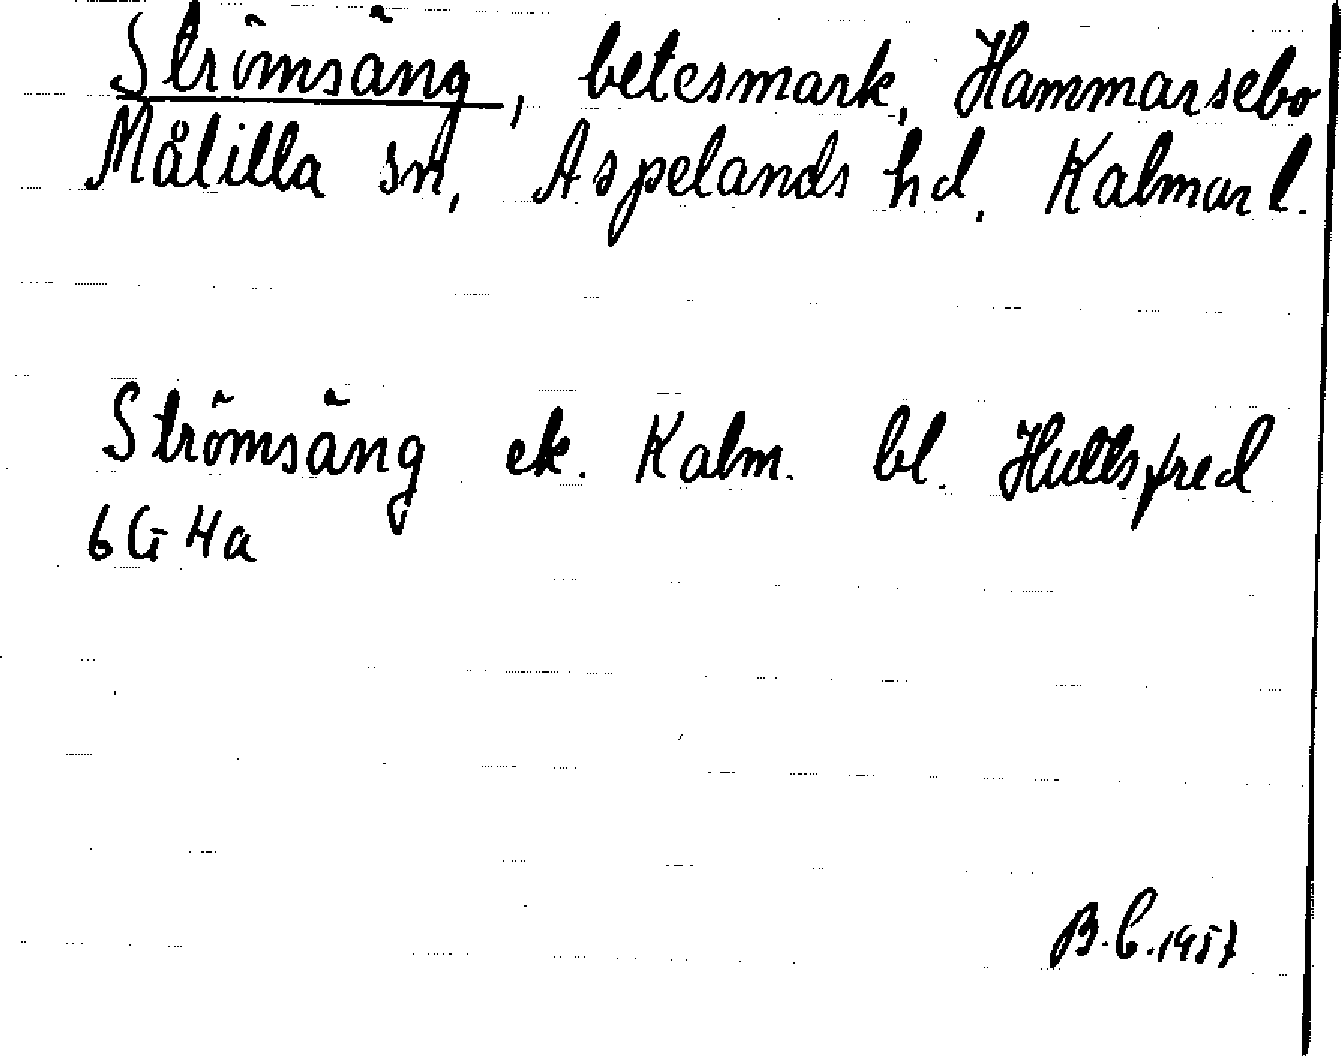 Strömsäng, betesmark, Hammarsebo
Målilla sn, Aspelands hd. Kalmar l.
Strömsäng ek. Kalm. bl. Hultsfred
6 G 4a
B.C. 1957